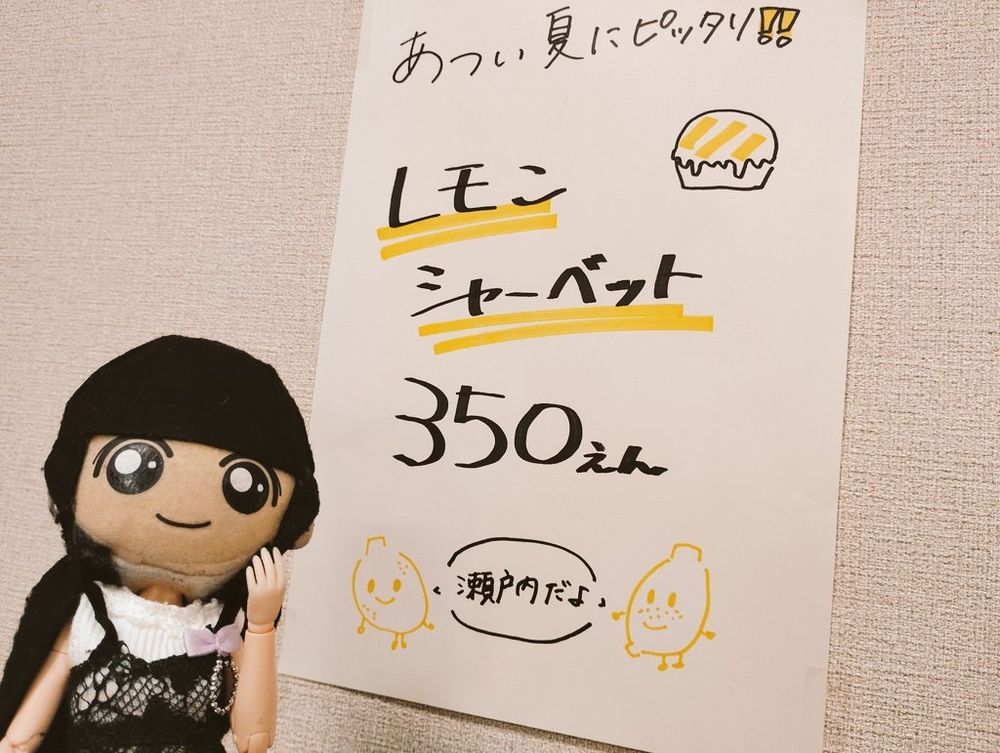 あつい夏にピッタリ!!
レモン
シャーベット
350えん
瀬戸内だよ